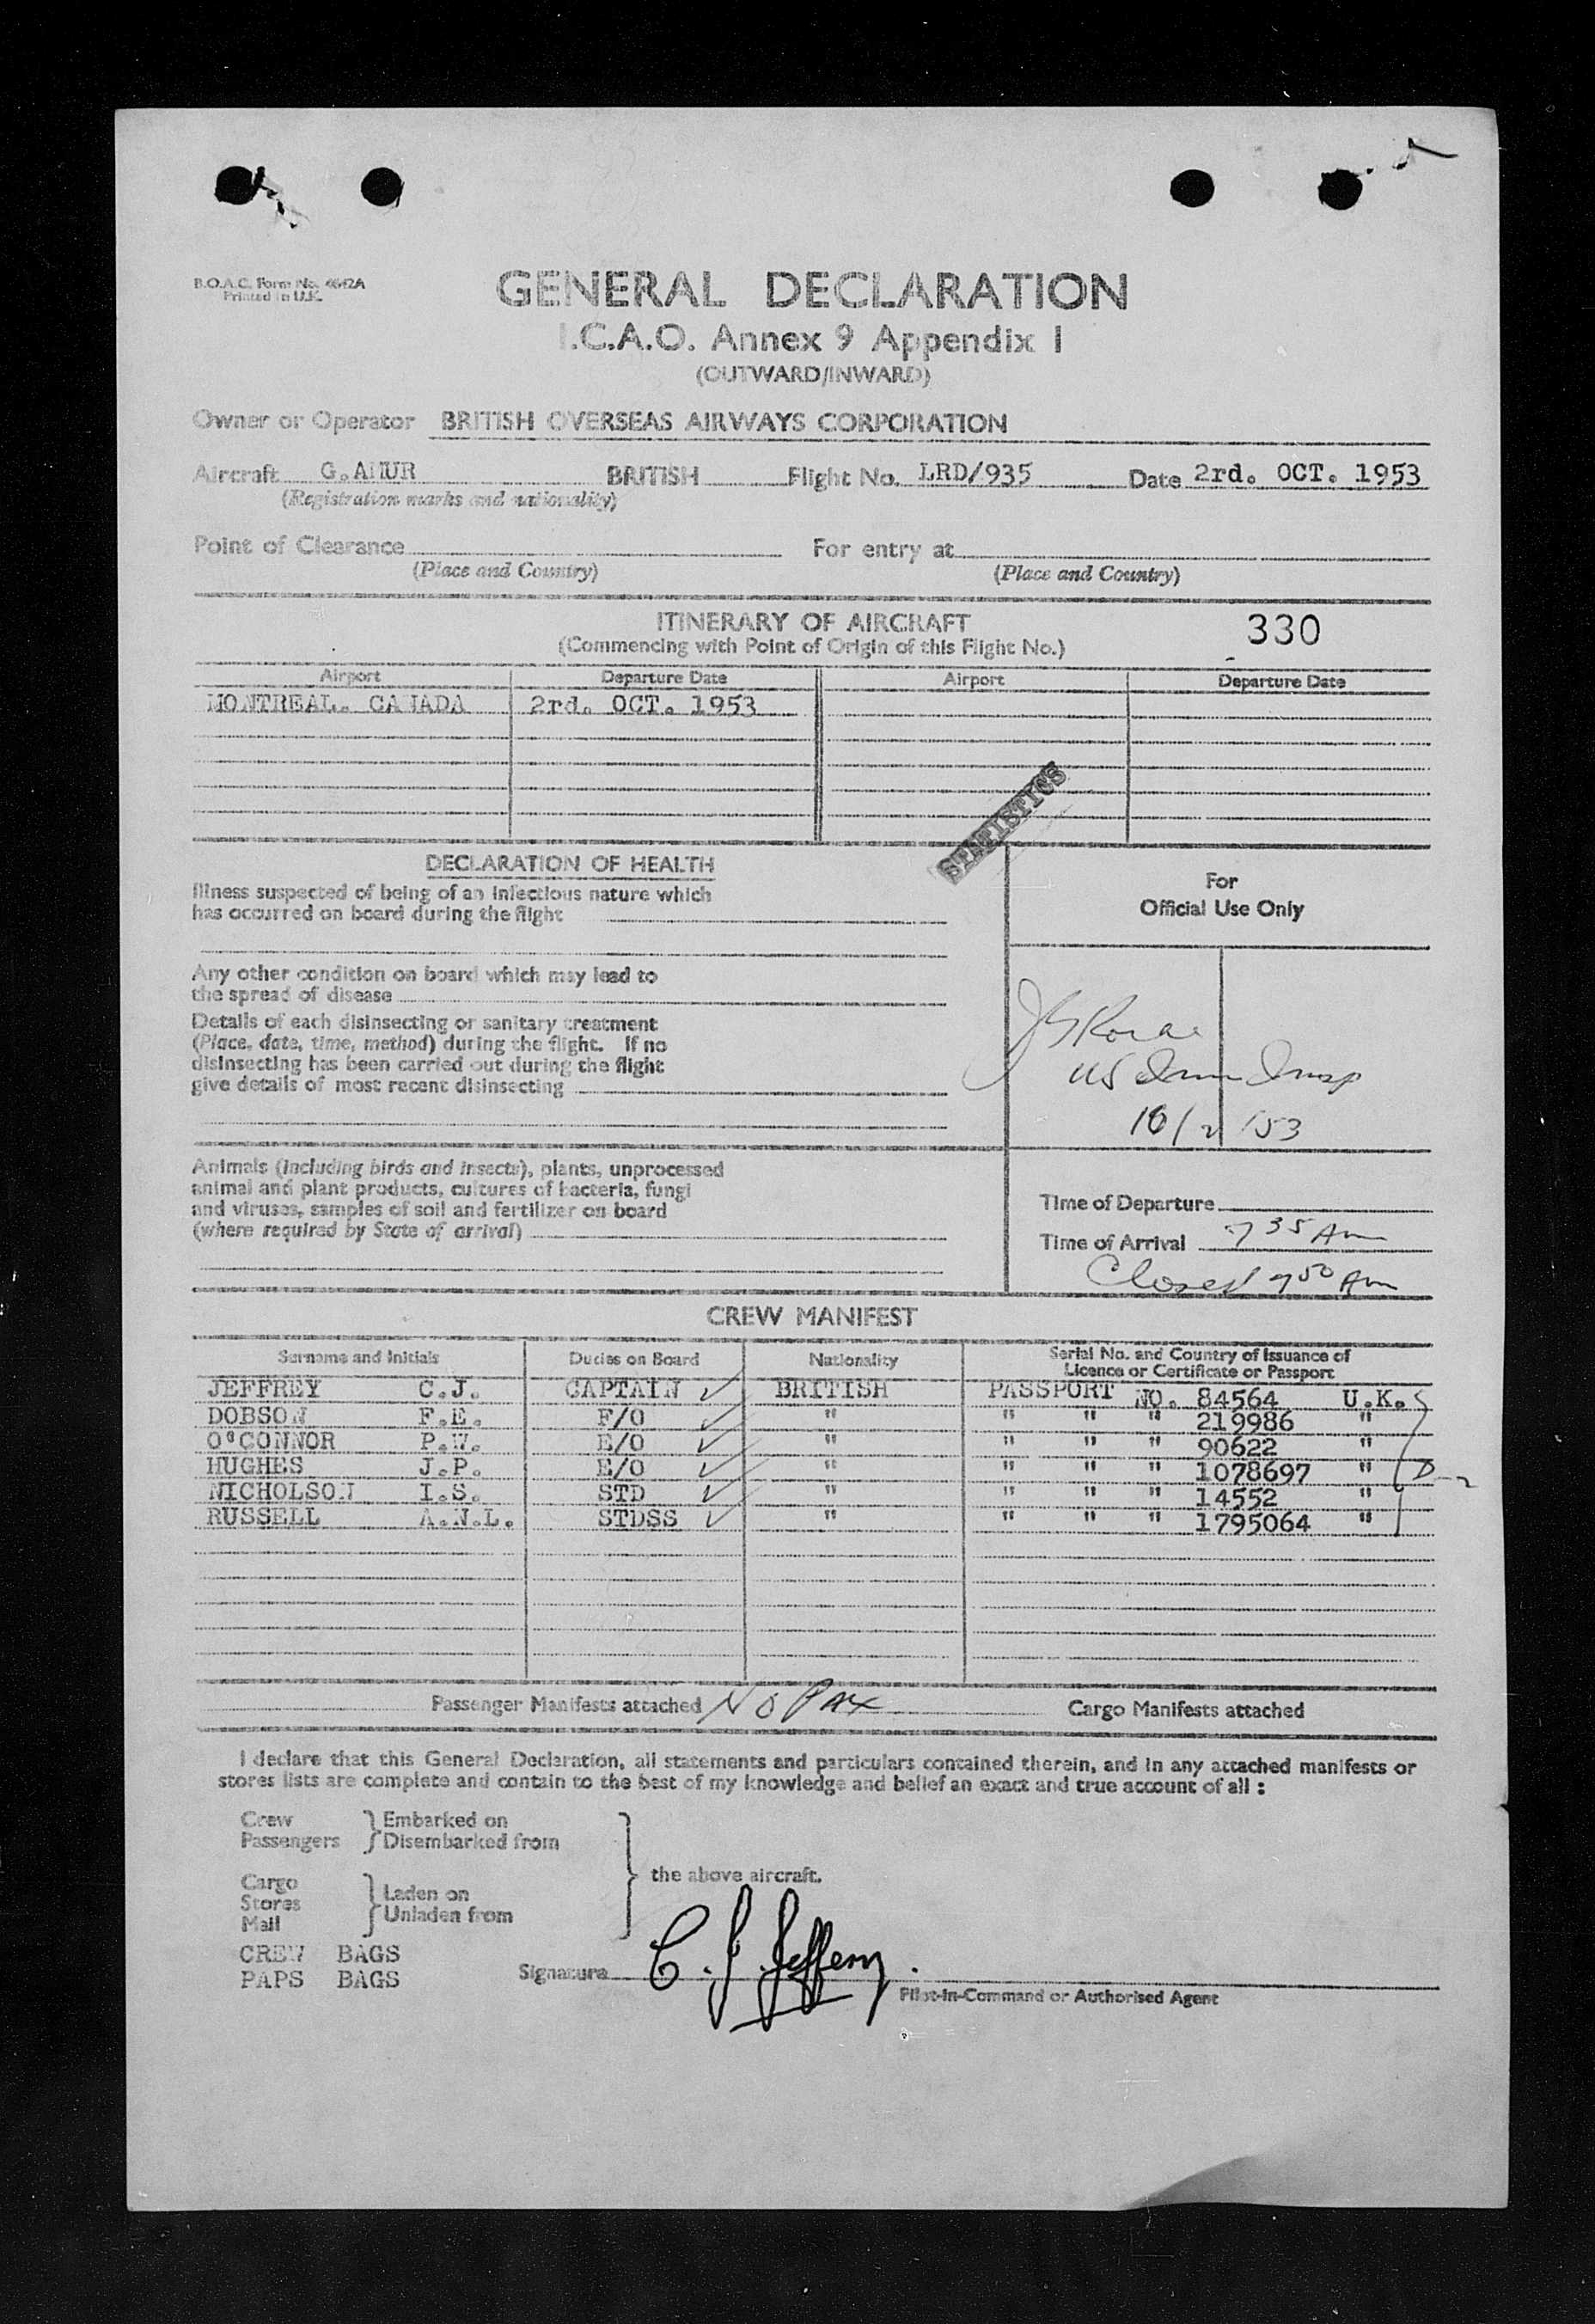 B.O.A.C. Form No. 4642A
Printed in U.K.
GENERAL DECLARATION
I.C.A.O. Annex 9 Appendix I
(OUTWARD/INWARD)
Owner or Operator BRITISH OVERSEAS AIRWAYS CORPORATION
Aircraft G.AHUR BRITISH Flight No. LRD/935 Date 2rd. OCT. 1953
(Registration marks and nationality)
Point of Clearance For entry at
(Place and Country) (Place and Country)
ITINERARY OF AIRCRAFT 330
(Commencing with Point of Origin of this Flight No.)
Airport Departure Date Airport Departure Date
MONTREAL. CANADA 2rd. OCT. 1953
STATISTICS
DECLARATION OF HEALTH
Illness suspected of being of an infectious nature which
has occurred on board during the flight
For
Official Use Only
Any other condition on board which may lead to
the spread of disease
Details of each disinsecting or sanitary treatment
(Place, date, time, method) during the flight. If no
disinsecting has been carried out during the flight
give details of most recent disinsecting
US Imm Insp
10/2/53
Animals (including birds and insects), plants, unprocessed
animal and plant products, cultures of bacteria, fungi
and viruses, samples of soil and fertilizer on board
(where required by State of arrival)
Time of Departure
Time of Arrival 7 35 Am
Closed 7 50 Am
CREW MANIFEST
Surname and Initials Duties on Board Nationality Serial No. and Country of Issuance of
Licence or Certificate or Passport
JEFFREY C.J. CAPTAIN ✓ BRITISH PASSPORT NO. 84564 U.K.
DOBSON F.E. F/O ✓ " " " " 219986 "
O'CONNOR P.W. E/O ✓ " " " " 90622 "
HUGHES J.P. E/O ✓ " " " " 1078697 "
NICHOLSON I.S. STD ✓ " " " " 14552 "
RUSSELL A.N.L. STDSS ✓ " " " " 1795064 "
Passenger Manifests attached No Pax Cargo Manifests attached
I declare that this General Declaration, all statements and particulars contained therein, and in any attached manifests or
stores lists are complete and contain to the best of my knowledge and belief an exact and true account of all :
Crew Embarked on
Passengers Disembarked from
the above aircraft.
Cargo
Stores Laden on
Mail Unladen from
CREW BAGS
PAPS BAGS
Signature C. J. Jeffery.
Pilot-in-Command or Authorised Agent